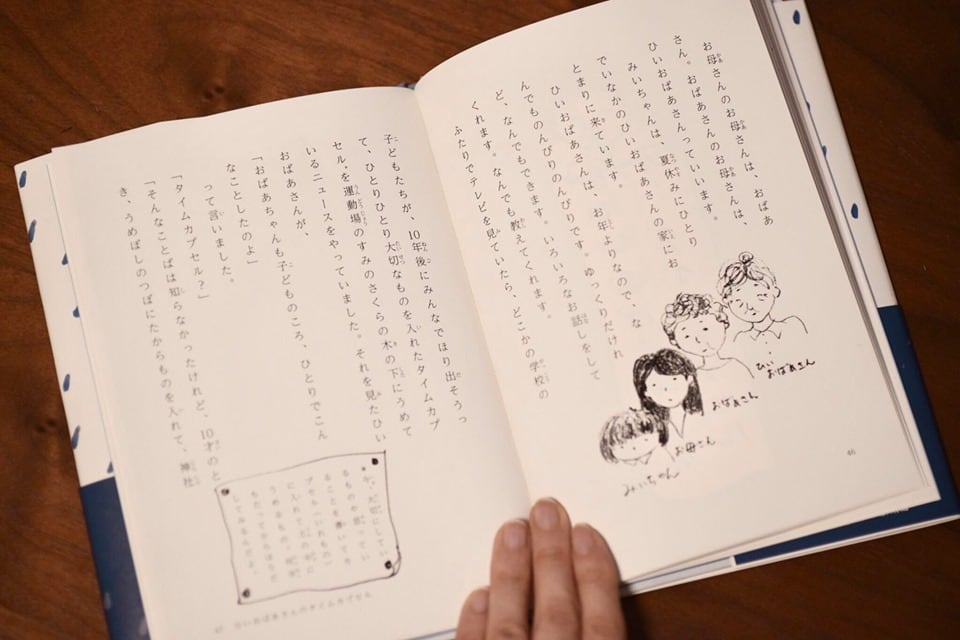 お母さんのお母さんは、おばあ
さん。おばあさんのお母さんは、
ひいおばあさんっていいます。
みいちゃんは、夏休みにひとり
でいなかのひいおばあさんの家にお
とまりに来ています。
ひいおばあさんは、お年よりなので、な
んでものんびりのんびりです。ゆっくりだけれ
ど、なんでもできます。いろいろなお話しをして
くれます。なんでも教えてくれます。
ふたりでテレビを見ていたら、どこかの学校の
ひいおばあさん
おばあさん
お母さん
みいちゃん
46
子どもたちが、10年後にみんなでほり出そうっ
て、ひとりひとり大切なものを入れたタイムカプ
セルを運動場のすみのさくらの木の下にうめて
いるニュースをやっていました。それを見たひい
おばあさんが、
「おばあちゃんも子どものころ、ひとりでこん
なことしたのよ」
って言いました。
「タイムカプセル?」
「そんなことばは知らなかったけれど、10才のと
き、うめぼしのつぼにたからものを入れて、神社
大切にしてい
るものや
ることを書いて
プセル
に入れて、土の中に
うめるもの。
たってからほりだ
してみるんだよ。
47 ひいおばあさんのタイムカプセル